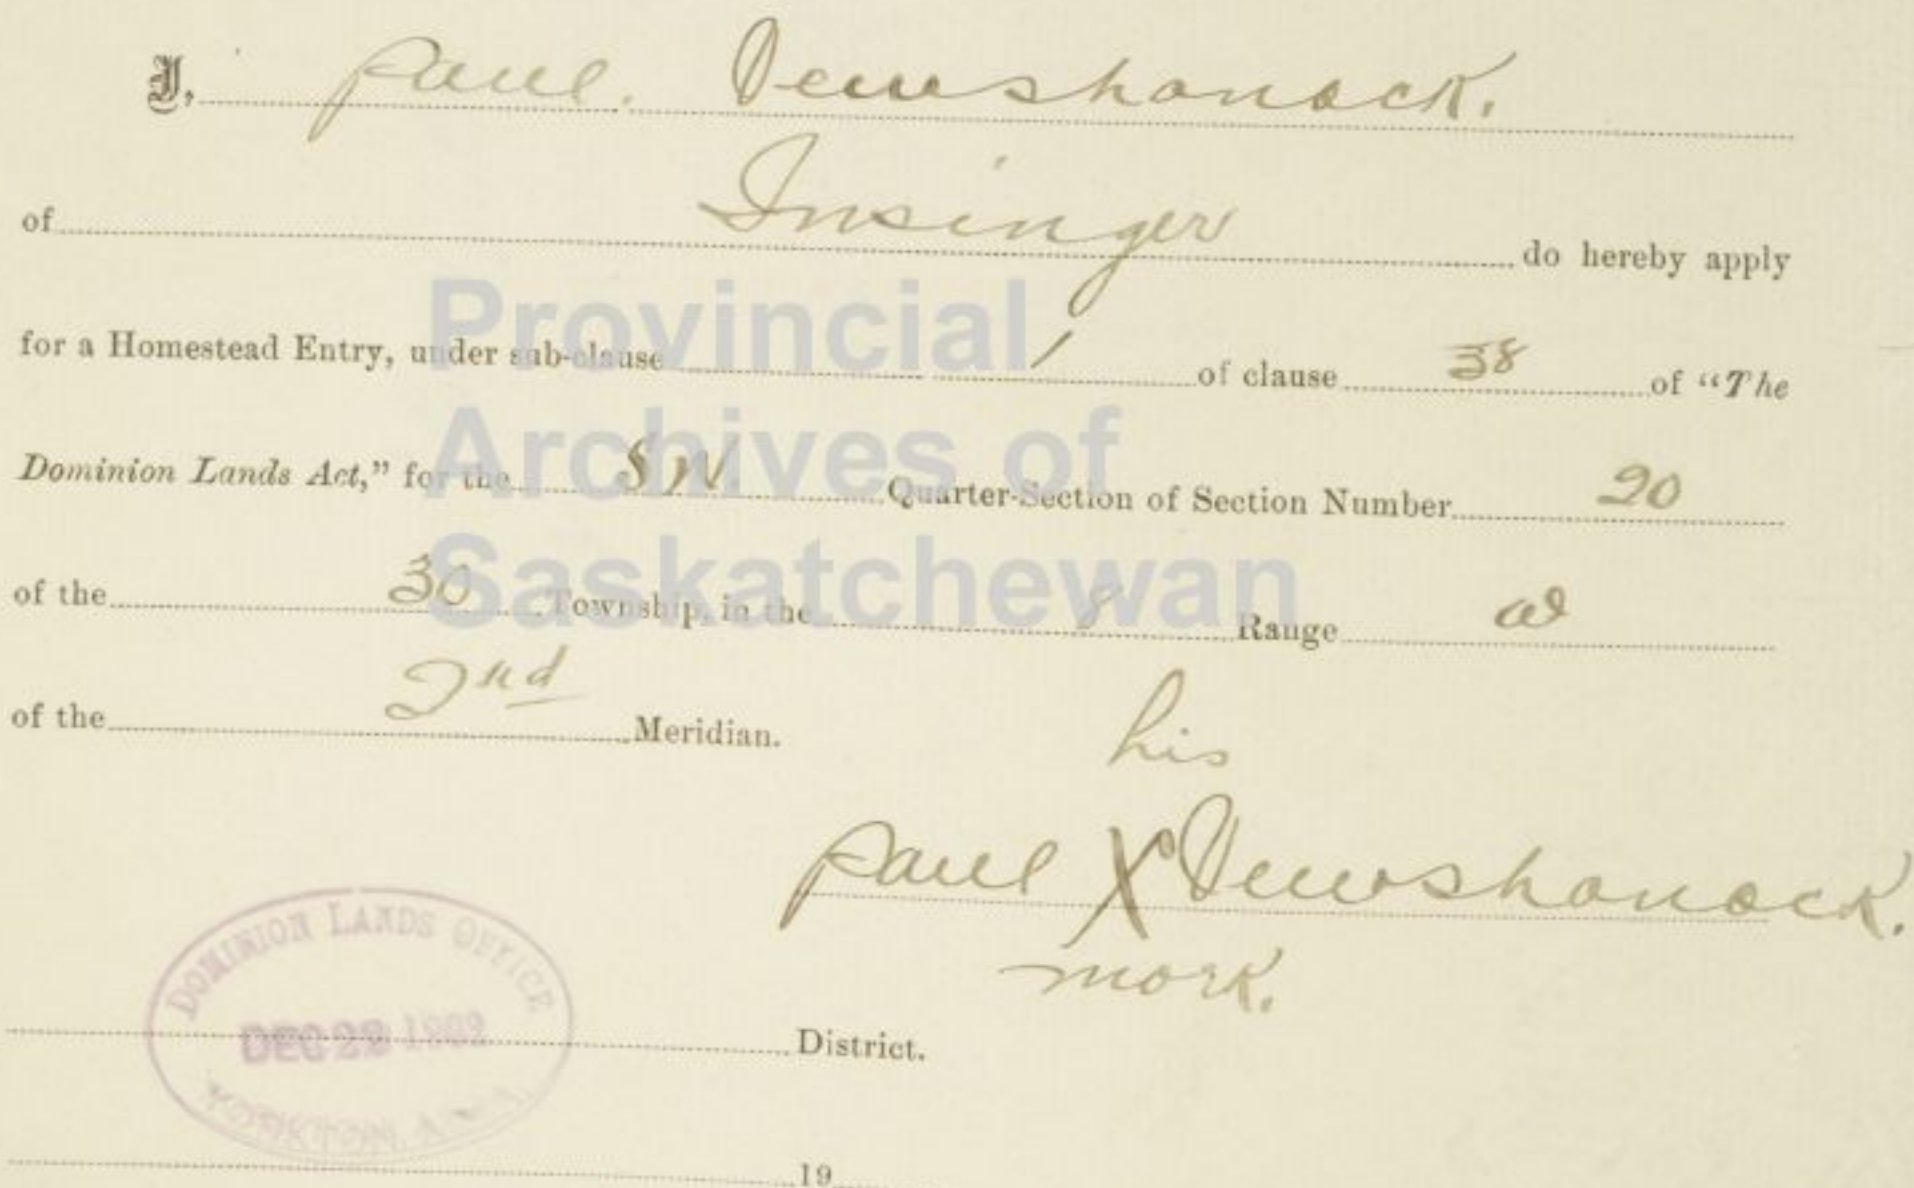 I, Paul. Dewshonock.
of Insinger do hereby apply
for a Homestead Entry, under sub-clause 1 of clause 38 of "The
Dominion Lands Act," for the SW Quarter-Section of Section Number 20
of the 30 Township, in the 8 Range W
of the 2nd Meridian.
his
Paul X Dewshonock.
mork.
DOMINION LANDS OFFICE
DEC 29 1902
YORKTON, ASSA.
District.
19
Provincial
Archives of
Saskatchewan